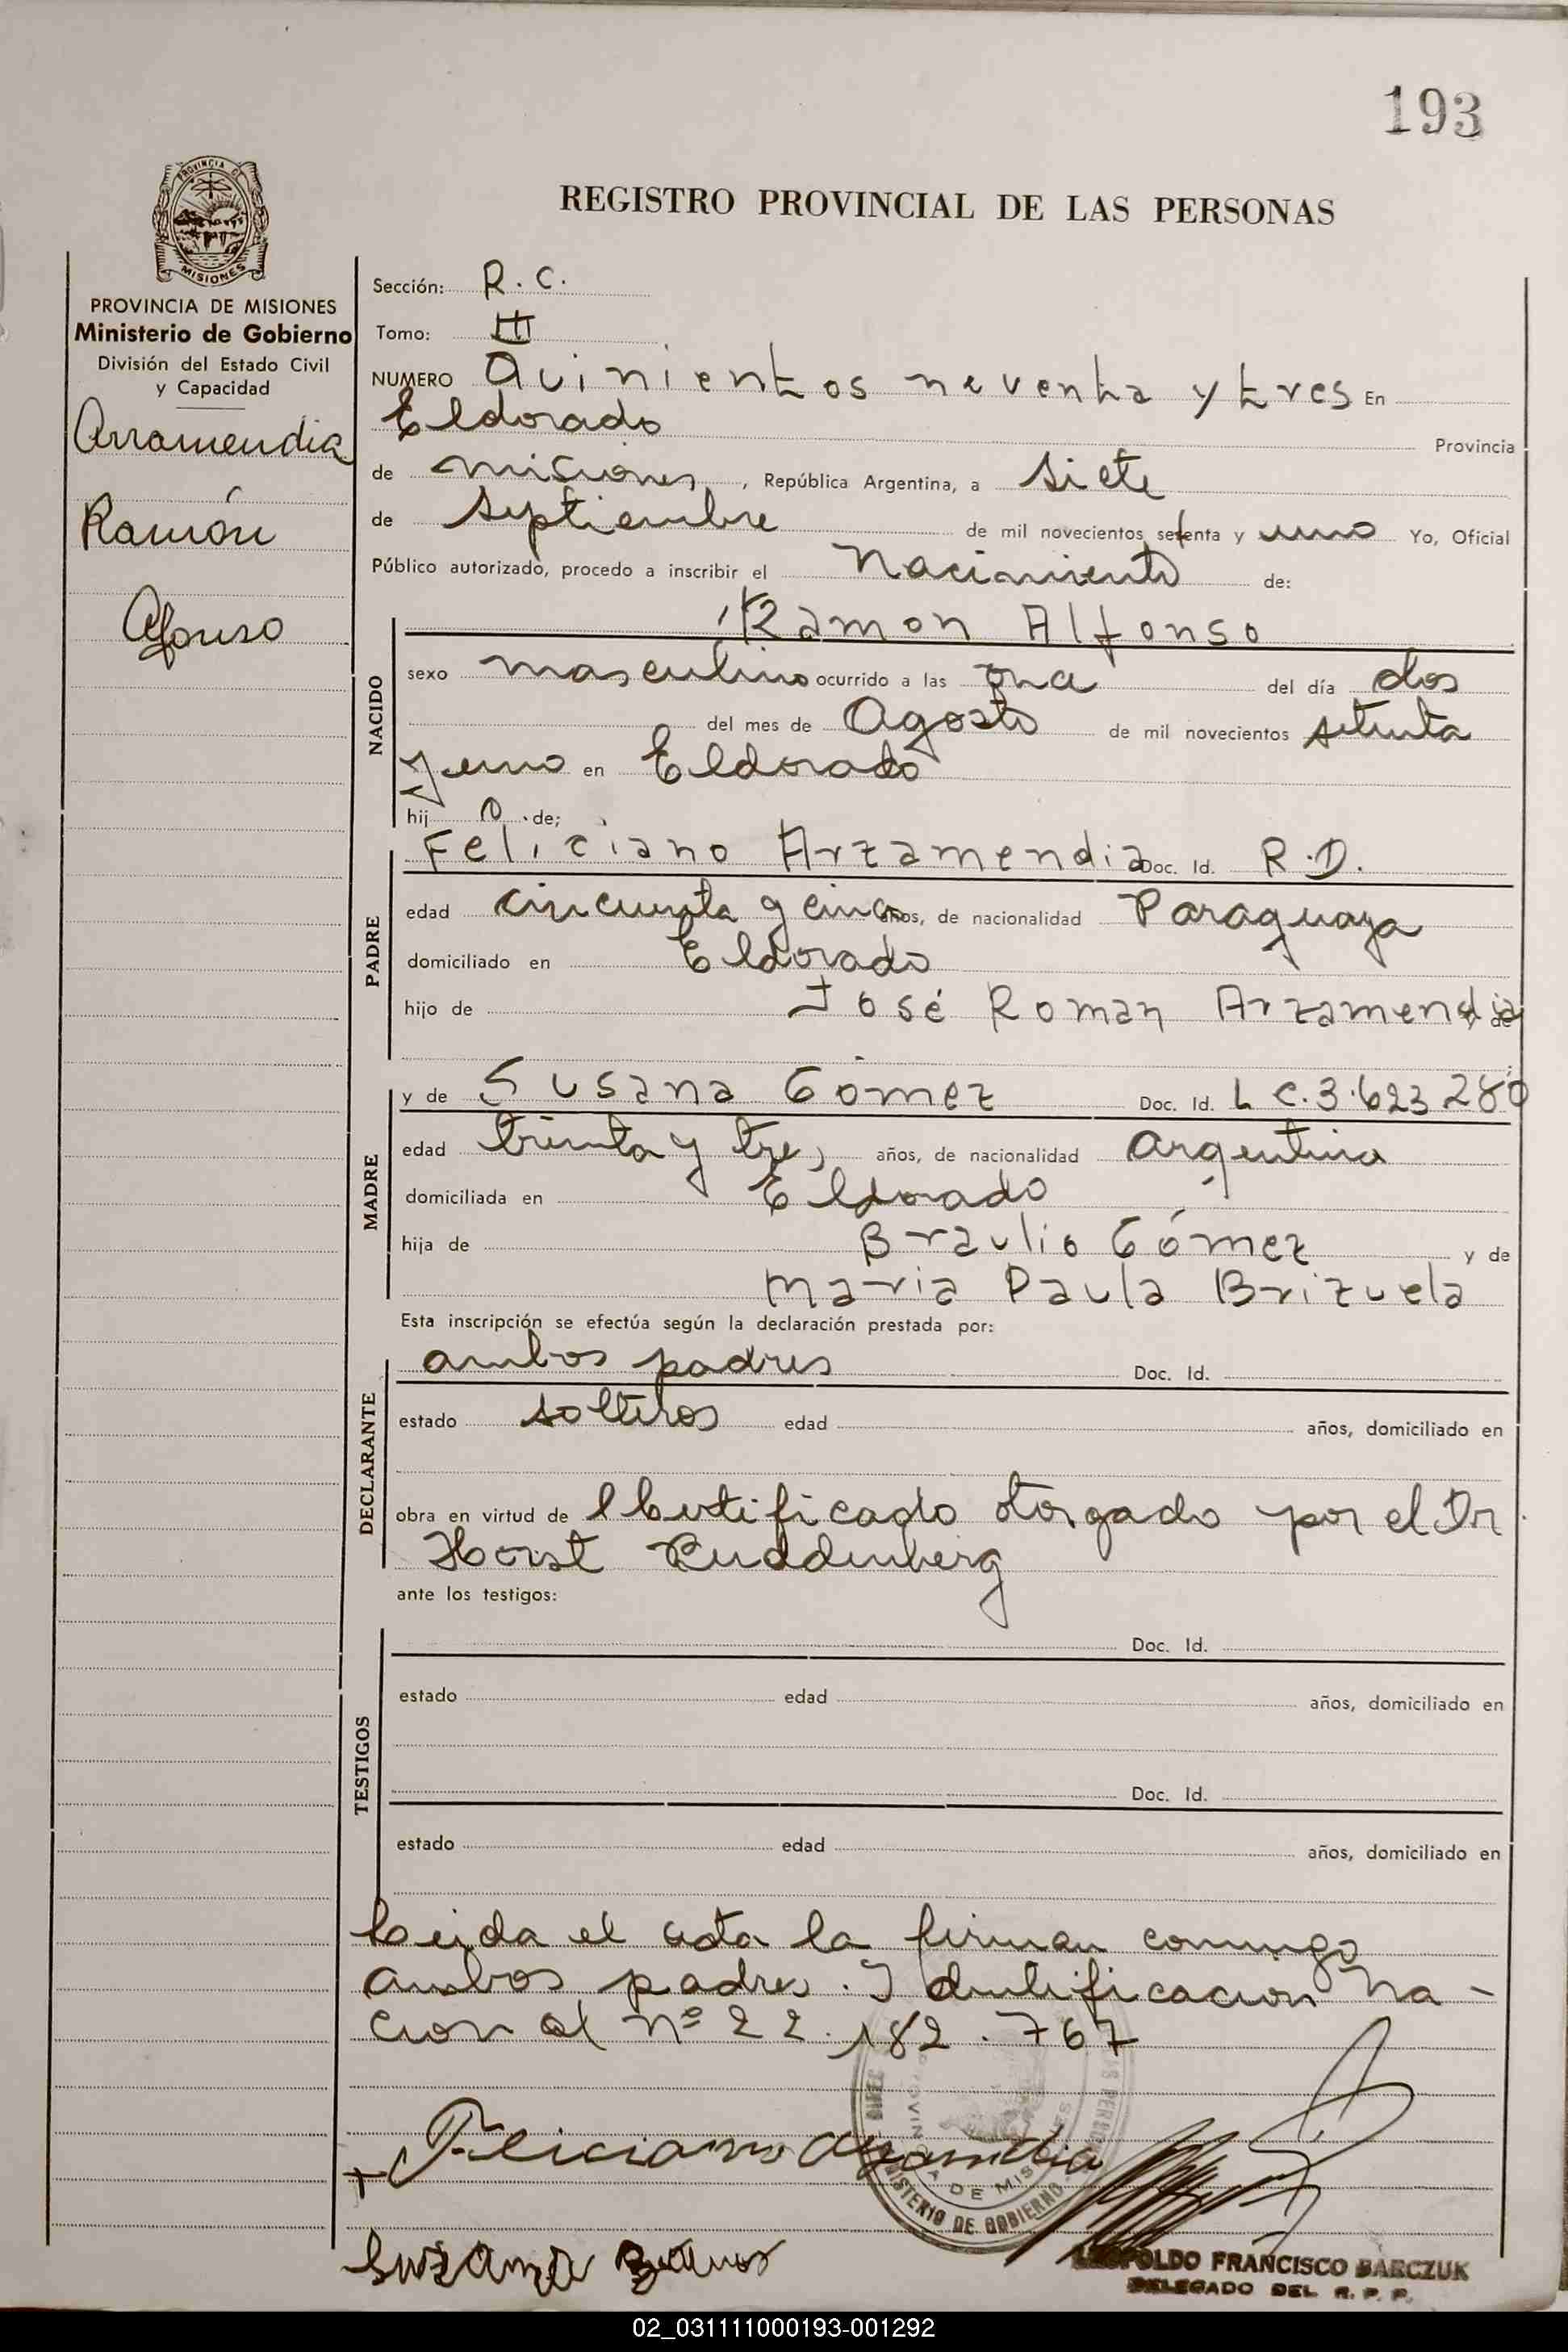 193
PROVINCIA DE
MISIONES
REGISTRO PROVINCIAL DE LAS PERSONAS
PROVINCIA DE MISIONES
Ministerio de Gobierno
División del Estado Civil
y Capacidad
Arramendia
Ramón
Afonso
Sección: R. C.
Tomo: III
NUMERO Quinientos neventa y tres En
Eldorado Provincia
de misiones, República Argentina, a siete
de septiembre de mil novecientos setenta y uno Yo, Oficial
Público autorizado, procedo a inscribir el nacimiento de:
NACIDO
Ramon Alfonso
sexo masculino ocurrido a las una del día dos
del mes de Agosto de mil novecientos setenta
y uno en Eldorado
hij o de;
PADRE
Feliciano Arzamendia Doc. Id. R.D.
edad cincuenta y cinco años, de nacionalidad Paraguaya
domiciliado en Eldorado
hijo de José Roman Arzamendia y de
MADRE
y de Susana Gómez Doc. Id. L C. 3.623 280
edad treinta y tres años, de nacionalidad argentina
domiciliada en Eldorado
hija de Braulio Gómez y de
maria Paula Brizuela
Esta inscripción se efectúa según la declaración prestada por:
DECLARANTE
ambos padres Doc. Id.
estado solteros edad años, domiciliado en
obra en virtud de Certificado otorgado por el Dr
Horst Buddenberg
ante los testigos:
TESTIGOS
Doc. Id.
estado edad años, domiciliado en
Doc. Id.
estado edad años, domiciliado en
Leida el acta la firman conmigo
ambos padres. I dentificacion na-
cion al nº 22.182.767
Feliciano
MINISTERIO DE GOBIERNO
LEOPOLDO FRANCISCO BARCZUK
DELEGADO DEL R. P. P.
02_031111000193-001292